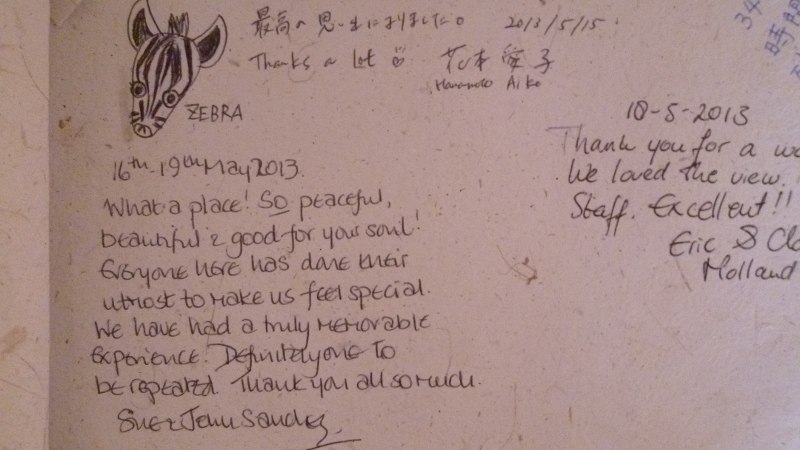 最高の思い出になりました。 2013/5/15.
Thanks a Lot 花本 愛子
Hanamoto Aiko
ZEBRA
16th-19th May 2013.
What a place! SO peaceful,
beautiful & good for your soul!
Everyone here has done their
utmost to make us feel special.
We have had a truly memorable
experience. Definitely one to
be repeated. Thank you all so much.
Sue & Jenu Sanchez
18-5-2013
Thank you for a
We loved the view.
Staff. Excellent!!
Eric &
Holland
34
時間